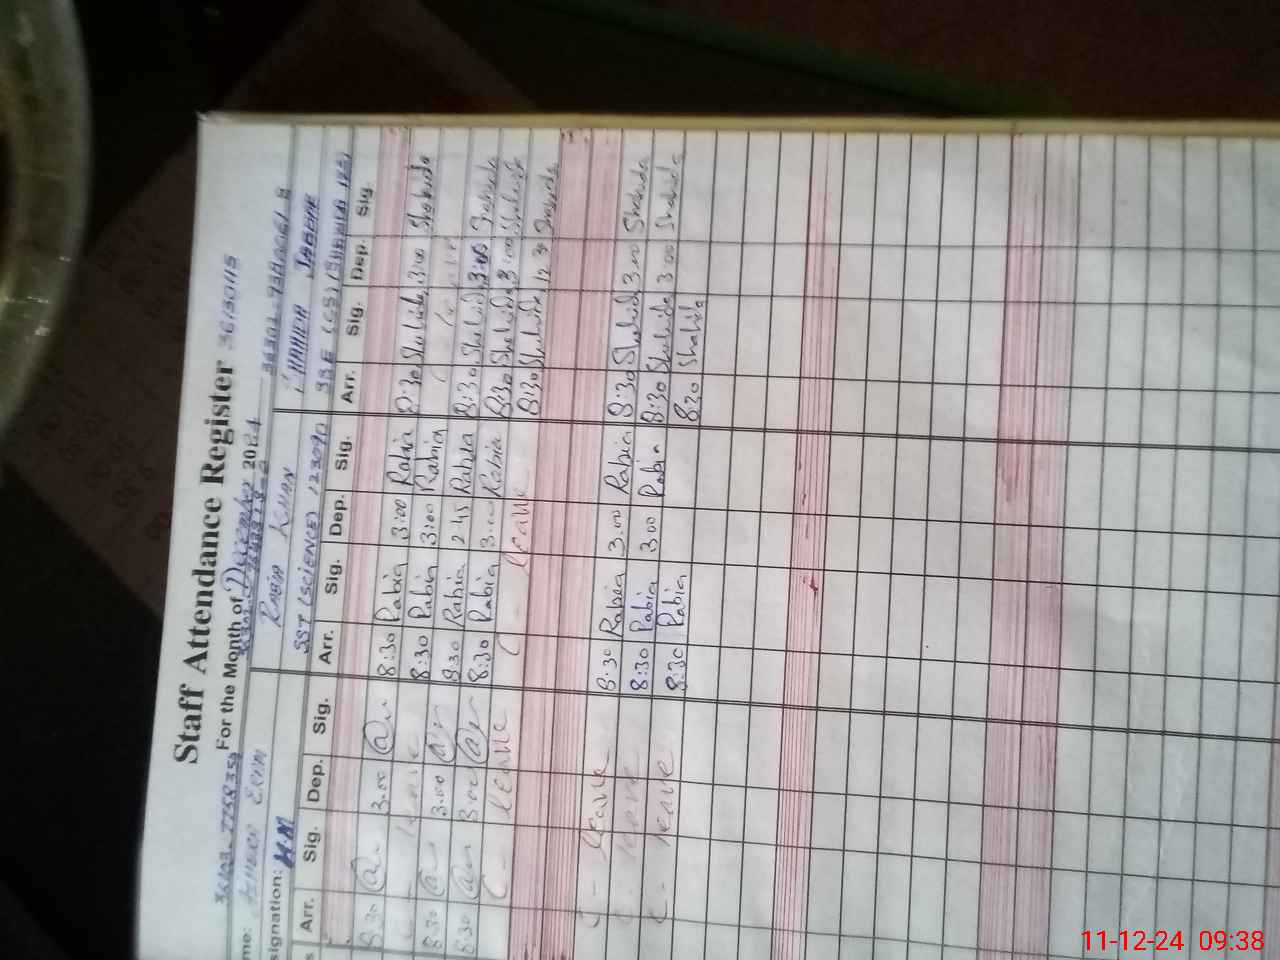 Staff Attendance Register 36130115
For the Month of December 2024
RABIA KHAN
SHAHIDA JABEEN
signation: H.M SST (SCIENCE) 123090
Arr. Sig. Dep. Sig. Arr. Sig. Dep. Sig. Arr. Sig. Dep. Sig.
8:30 3.00 8:30 Rabia 3:00 Rabia 8:30 Shahida 3:00 Shahida
leave 8:30 Rabia 3:00 Rabia leave
8:30 3.00 8:30 Rabia 2 45 Rabia 8:30 Shahida 3:00 Shahida
8:30 3.00 8:30 Rabia 3:00 Rabia 8:30 Shahida 3:00 Shahida
leave leave 8:30 Shahida 12 30 Shahida
leave 8:30 Rabia 3.00 Rabia 8:30 Shahida 3.00 Shahida
leave 8:30 Rabia 3 00 Rabia 8:30 Shahida 3 00 Shahida
leave 8:30 Rabia 8:30 Shahida
11-12-24 09:38